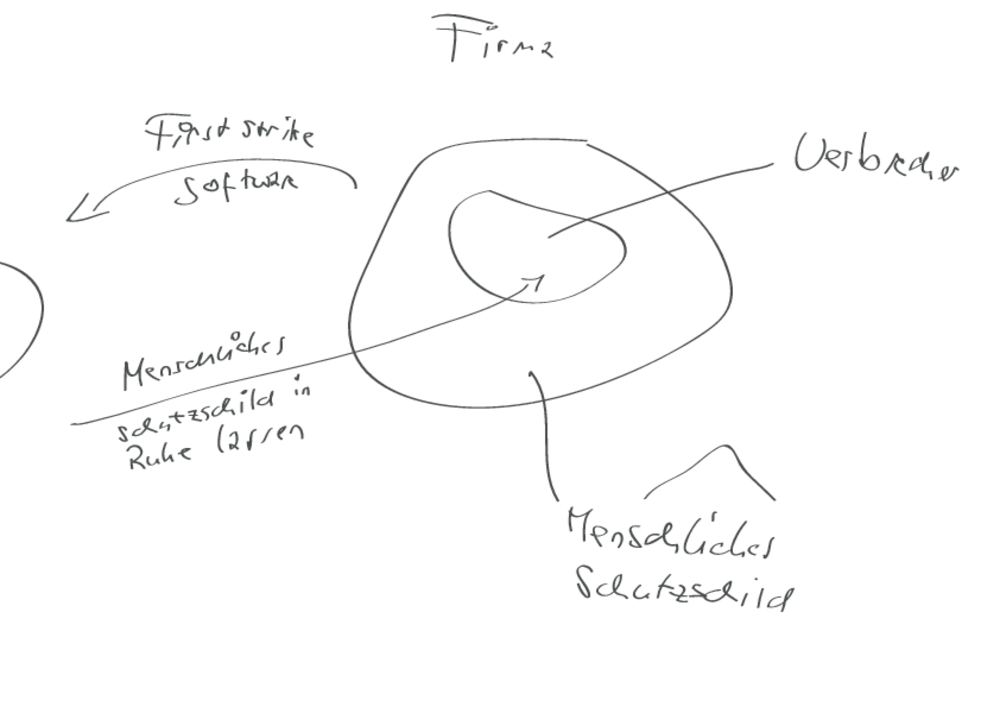 Firma
First strike
Software
Verbrecher
Menschliches
Schutzschild in
Ruhe lassen
Menschliches
Schutzschild